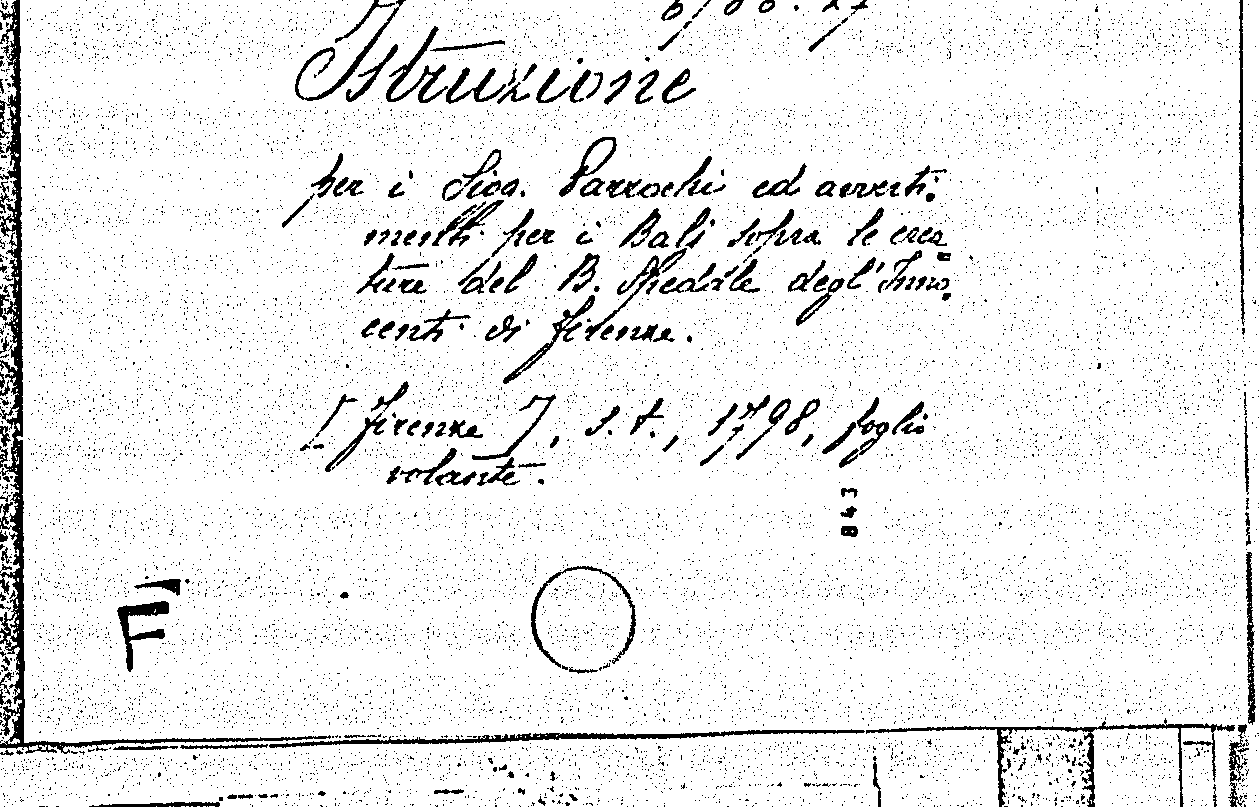 Istruzione
per i Sigg. Parrochi ed avverti-
menti per i Bali sopra le crea-
ture del R. Spedale degl'Inno-
centi di Firenze.
[Firenze], s.t., 1798, foglio
volante.
843
F